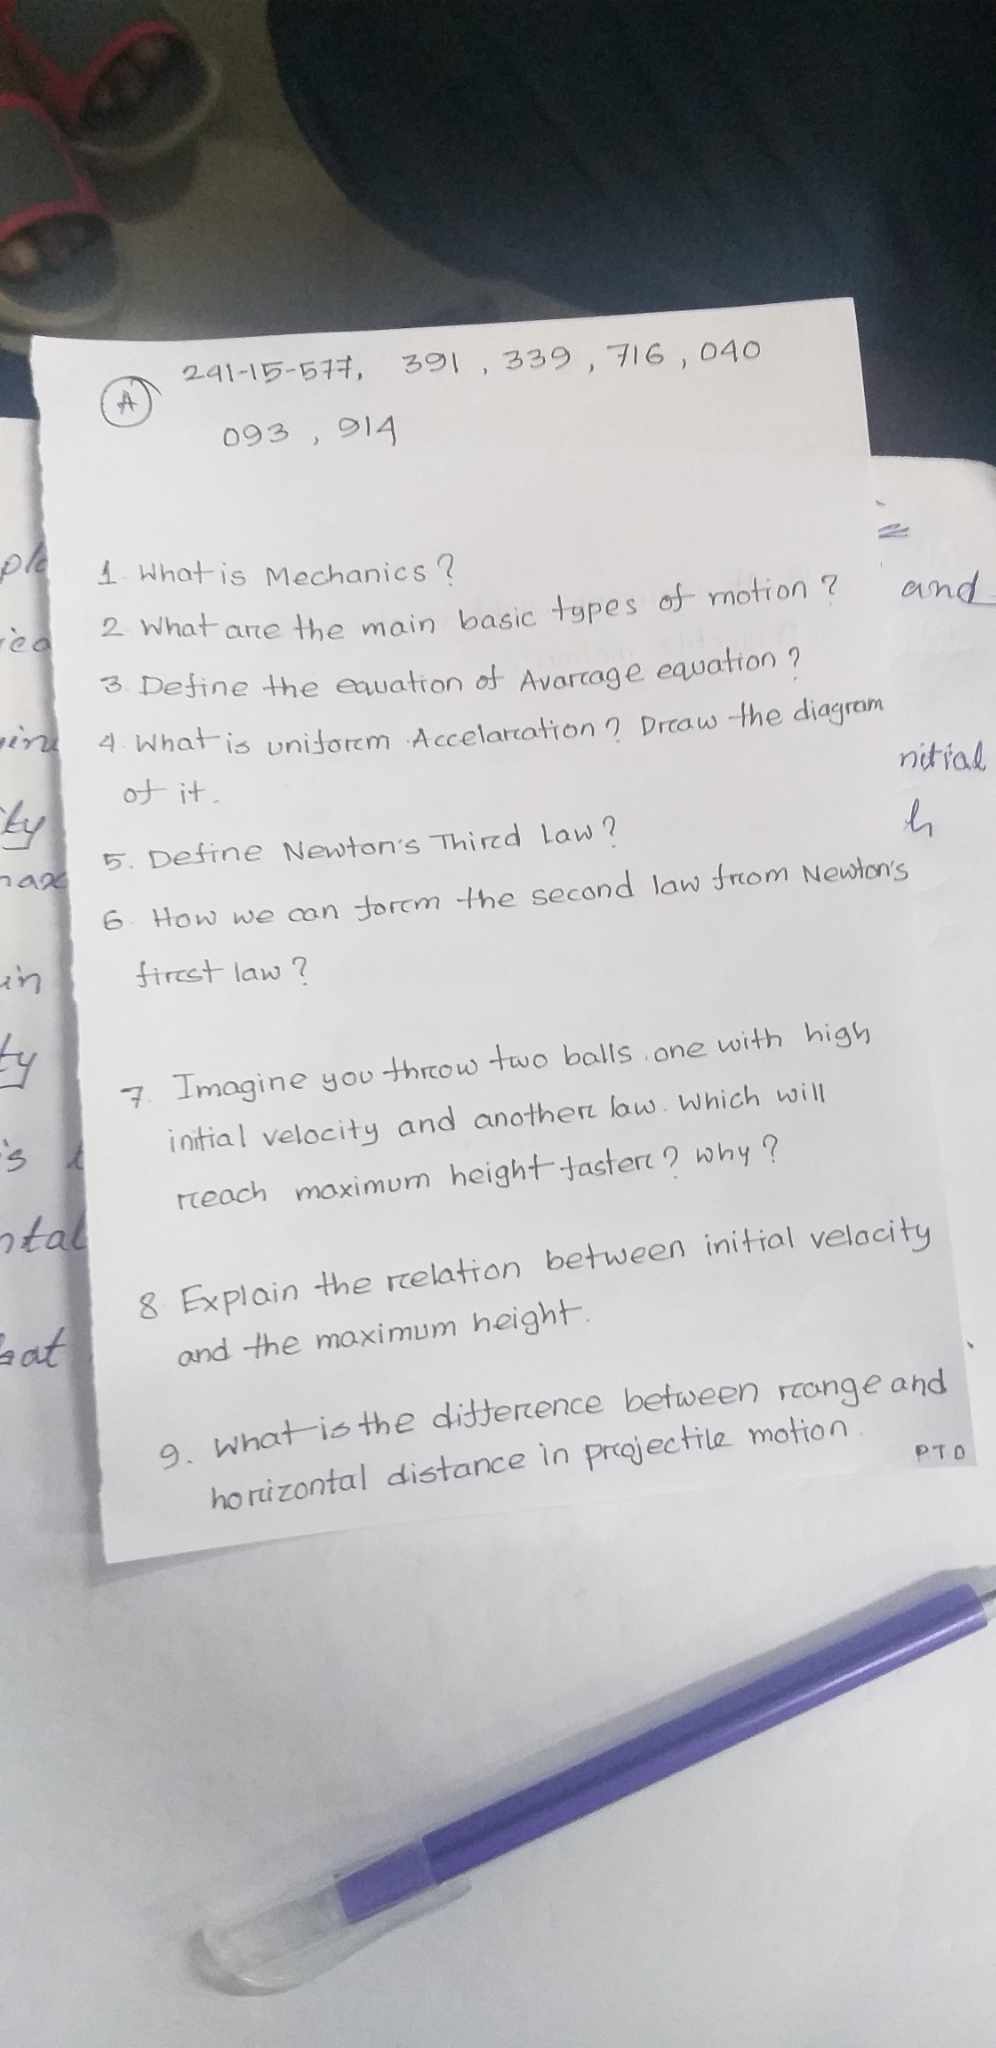 A
241-15-577, 391, 339, 716, 040
093, 914
1. What is Mechanics?
2 What are the main basic types of motion?
3. Define the eauation of Avarage equation?
4. What is uniform Accelaration? Draw the diagram
of it.
5. Define Newton's Third Law?
6. How we can form the second law from Newton's
first law?
7. Imagine you throw two balls. one with high
initial velocity and another law. Which will
reach maximum height faster? why?
8 Explain the relation between initial velocity
and the maximum height.
9. What is the difference between range and
horizontal distance in projectile motion.
PTO
and
nitial
h
ty
in
ty
's
ntal
hat